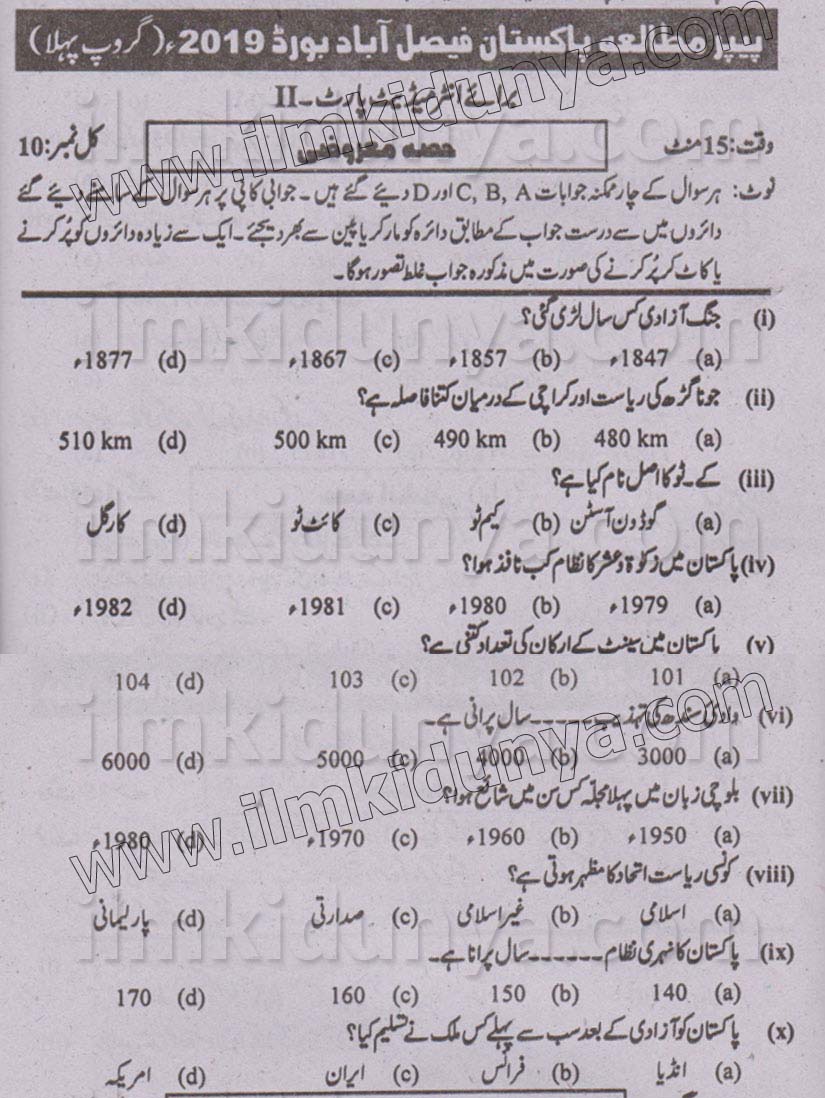 پیپر مطالعہ پاکستان فیصل آباد بورڈ 2019ء (گروپ پہلا)
برائے انٹرمیڈیٹ پارٹ-II
وقت: 15 منٹ حصہ معروضی کل نمبر: 10
نوٹ: ہر سوال کے چار ممکنہ جوابات C, B, A اور D دیئے گئے ہیں۔ جوابی کاپی پر ہر سوال کے سامنے دیئے گئے
دائروں میں سے درست جواب کے مطابق دائرہ کو مارکر یا پین سے بھر دیجئے۔ ایک سے زیادہ دائروں کو پُر کرنے
یا کاٹ کر پُر کرنے کی صورت میں مذکورہ جواب غلط تصور ہوگا۔
(i) جنگ آزادی کس سال لڑی گئی؟
(a) 1847ء (b) 1857ء (c) 1867ء (d) 1877ء
(ii) جوناگڑھ کی ریاست اور کراچی کے درمیان کتنا فاصلہ ہے؟
(a) 480 km (b) 490 km (c) 500 km (d) 510 km
(iii) کے-ٹو کا اصل نام کیا ہے؟
(a) گوڈون آسٹن (b) کیم ٹو (c) کائٹ ٹو (d) کارگل
(iv) پاکستان میں زکوٰۃ و عشر کا نظام کب نافذ ہوا؟
(a) 1979ء (b) 1980ء (c) 1981ء (d) 1982ء
(v) پاکستان میں سینٹ کے ارکان کی تعداد کتنی ہے؟
(a) 101 (b) 102 (c) 103 (d) 104
(vi) وادیٔ سندھ کی تہذیب ------ سال پرانی ہے۔
(a) 3000 (b) 4000 (c) 5000 (d) 6000
(vii) بلوچی زبان میں پہلا مجلّہ کس سن میں شائع ہوا؟
(a) 1950ء (b) 1960ء (c) 1970ء (d) 1980ء
(viii) کونسی ریاست اتحاد کا مظہر ہوتی ہے؟
(a) اسلامی (b) غیر اسلامی (c) صدارتی (d) پارلیمانی
(ix) پاکستان کا نہری نظام ------ سال پرانا ہے۔
(a) 140 (b) 150 (c) 160 (d) 170
(x) پاکستان کو آزادی کے بعد سب سے پہلے کس ملک نے تسلیم کیا؟
(a) انڈیا (b) فرانس (c) ایران (d) امریکہ
www.ilmkidunya.com
www.ilmkidunya.com
ilmkidunya.com
ilmkidunya.com
ilmkidunya.com
ilmkidunya.com
ilmkidunya.com